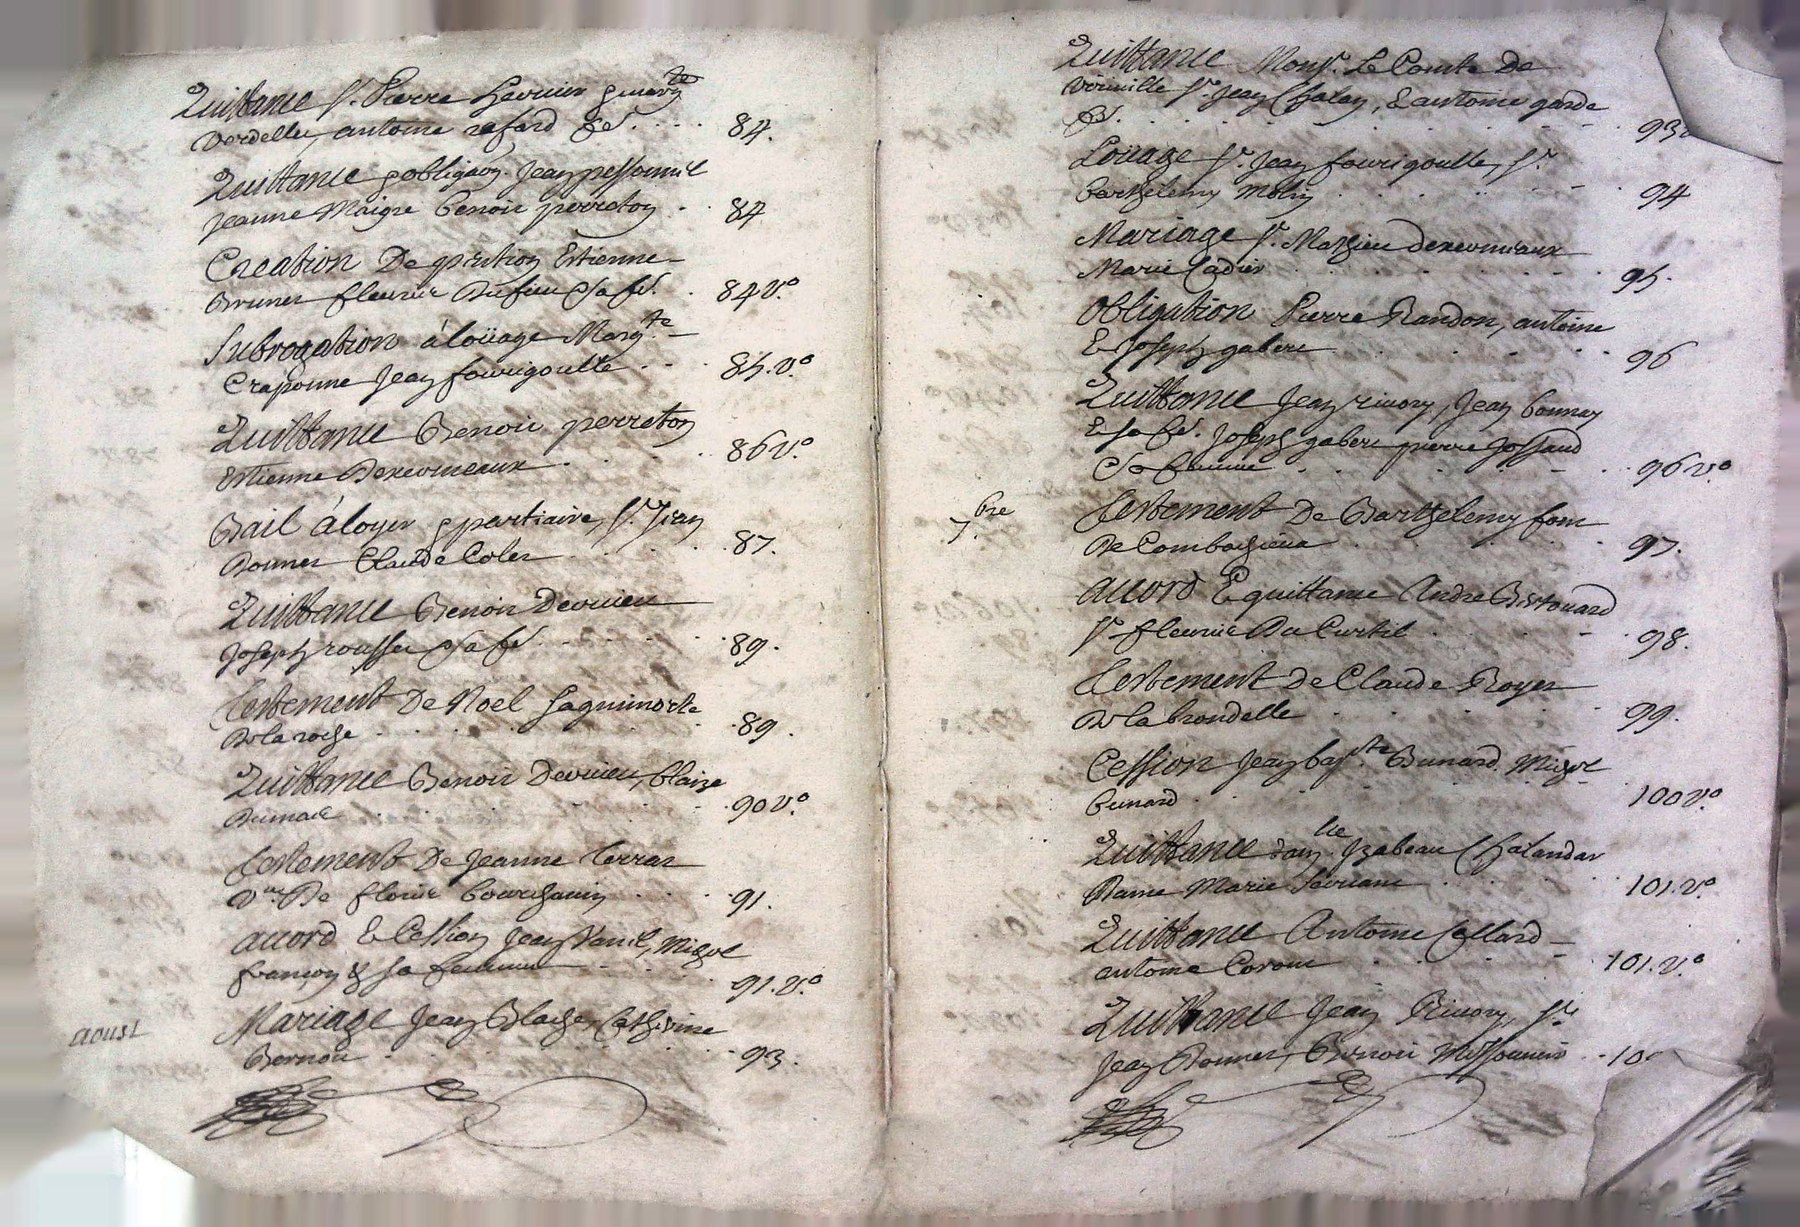 Quittance Sr. Pierre
Verdellet, antoine rafard &c. 84.
Quittance Jean pessonnel
Jeanne Maigre Benoit perreton 84
Creation De Estienne
Brunet fleurie &sa fe. 84 v.o
Subrogation à loüage Marg.te
Craponne Jean fourigoulte 85. v.o
Quittance Benoit perreton
Estienne Derevineaux 86 v.o
Bail à loyer partiaire, Sr. Jean
Donnet Claude Colet 87.
Quittance Benoit Devuieu
Joseph rousset &sa fe. 89.
Testement De Noel
De la roche 89.
Quittance Benoit Devuieu, blaize
90 v.o
Testement De Jeanne Terras
V.ve De fleurie 91.
accord & Cession Jean Michel
françon & sa femme 91. v.o
aoust
Mariage Jean Blache, Catherine
Bernou 93.
Quittance Monsr. Le Comte De
Virinille Sr. Jean Chalay, & antoine garde
&c. 93
Loüage Sr. Jean fourigoulte, Sr.
barthelemy Molin 94
Mariage Sr. Mathieu derevineaux
Marie Cadier 95.
Obligation Pierre Randon, antoine
& Joseph gabert 96
Quittance Jean rivory, Jean bonnay
& sa fe. Joseph gabert pierre Jossaud
& sa femme 96 v.o
7.bre
Testement De Barthelemy fom
De Combachieua 97.
accord & quittance Andre
Sr. fleurie Du Curtil 98.
Testement de Claude Royer
De la brondelle 99.
Cession Jean bap.te Bunard Michel
bunard 100 v.o
Quittance dam.lle Izabeau Chalandar
Dame Marie 101. v.o
Quittance Antoine Collard
antoine 101. v.o
Quittance Jean Rivory, Sr.
Jean Donnet, Benoit Missonnier 10